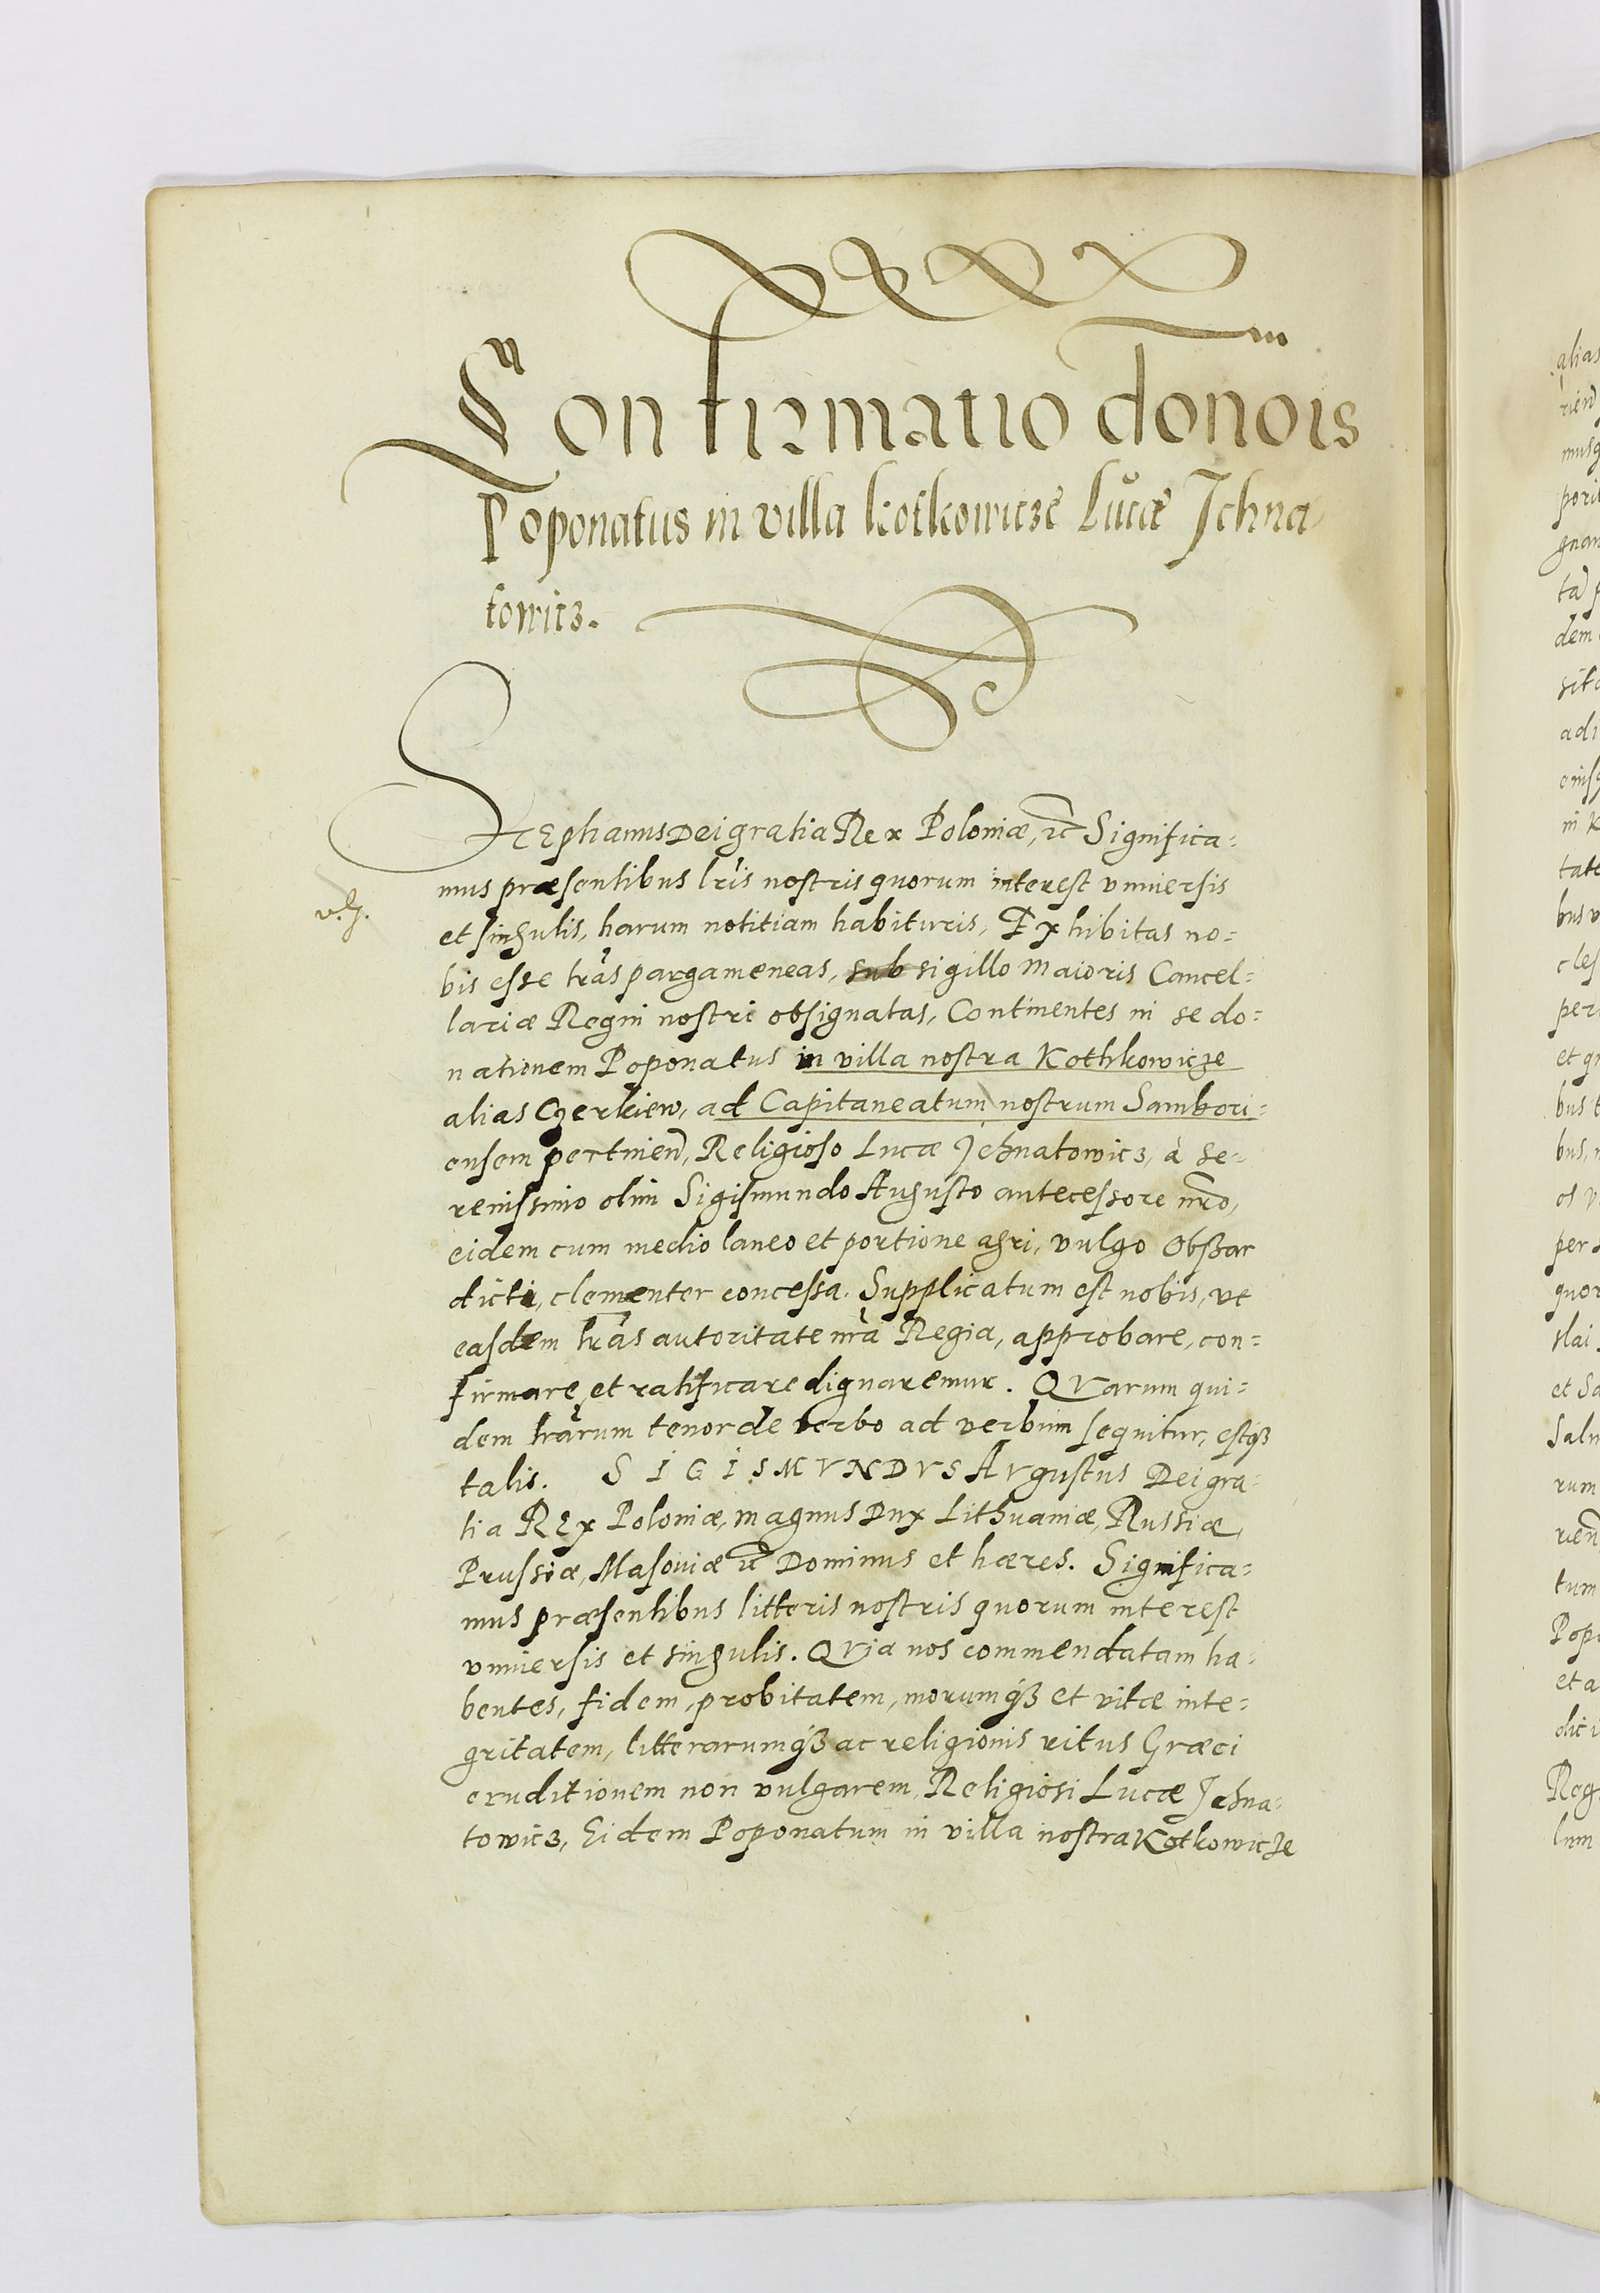 Confirmatio donois
Poponatus in villa Kotkowicze Lucæ Ichna
towicz.
Stephanus Dei gratia Rex Poloniæ, etc Significa-
mus præsentibus lris nostris quorum interest vniuersis
v. g.
et singulis, harum notitiam habituris, Exhibitas no-
bis esse lras pargameneas, sub sigillo maioris Cancel-
lariæ Regni nostri obsignatas, Continentes in se do-
nationem Poponatus in villa nostra Kothkowicze
alias Czerkiew, ad Capitaneatum nostrum Sambori-
ensem pertinen, Religioso Lucæ Jchnatowicz, à Se-
renissimo olim Sigismundo Augusto antecessore nro,
eidem cum medio laneo et portione agri, vulgo Obszar
dicti, clementer concessa. Supplicatum est nobis, vt
easdem lras autoritate nra Regia, approbare, con-
firmare et ratificare dignaremur. QVarum qui-
dem lrarum tenor de verbo ad verbum sequitur, estq3
talis. SIGISMVNDVS AVgustus Dei gra-
tia REx Poloniæ, magnus Dux Lithuaniæ, Russiæ,
Prussiæ, Masouiæ etc Dominus et hæres. Significa-
mus præsentibus litteris nostris quorum interest
vniuersis et singulis. QVia nos commendatam ha-
bentes, fidem, probitatem, morumq3 et vitæ inte-
gritatem, litterarumq3 ac religionis ritus Græci
eruditionem non vulgarem, Religiosi Lucæ Jchna-
towicz, Eidem Poponatum in villa nostra Kotkowicze